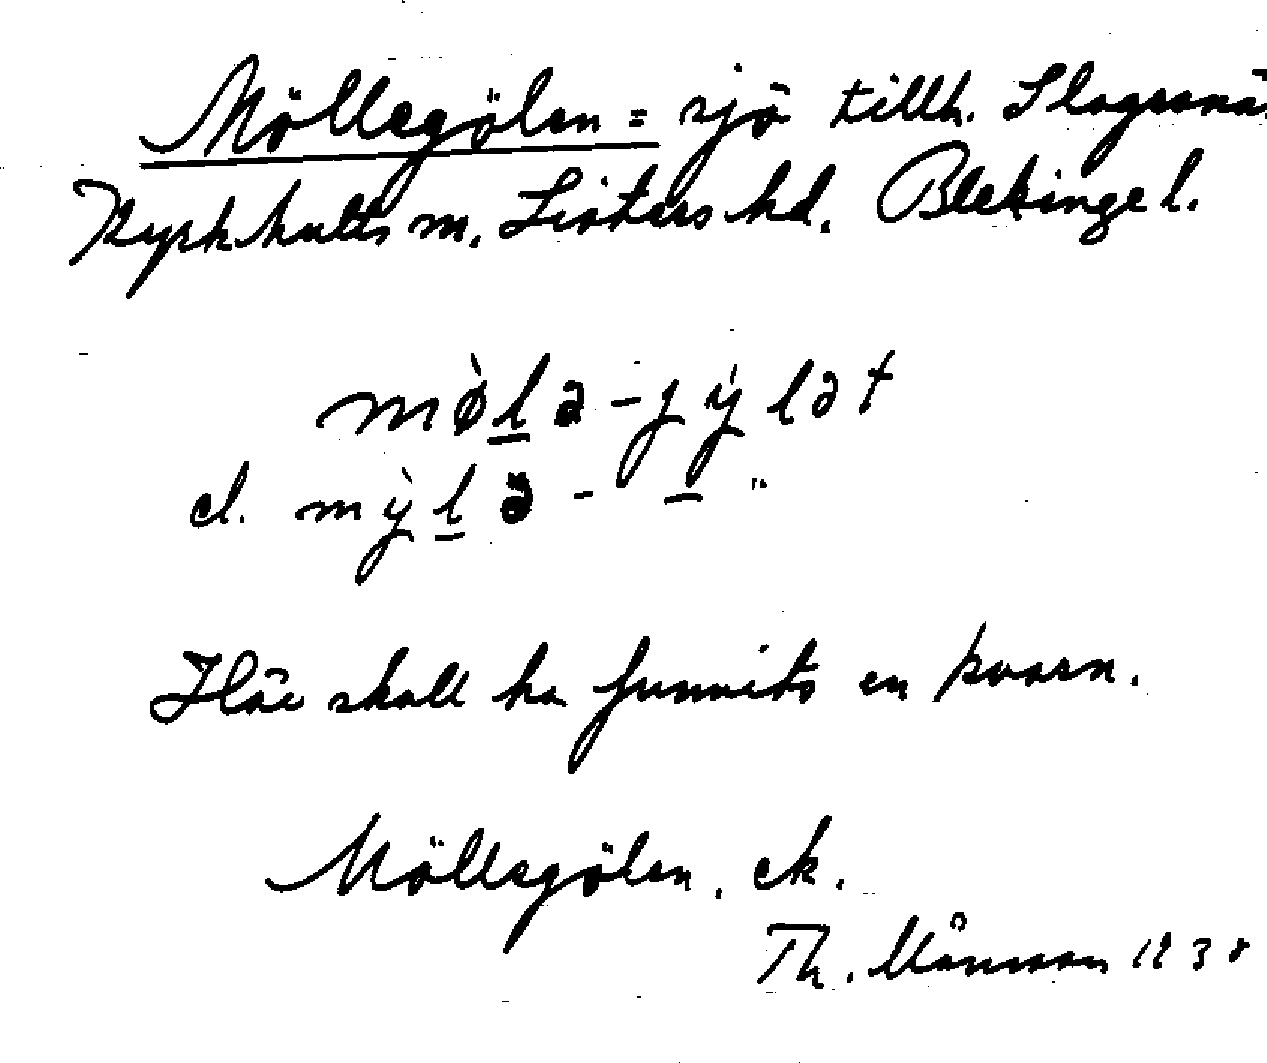 Möllegölen = sjö tillh. Slagesnä
Kyrkhults sn, Listers hd. Blekinge l.
mø̀lə-jỳlət
el. mỳlə - – "
Här skall ha funnits en kvarn.
Möllegölen, ek.
Th. Månsson 1938